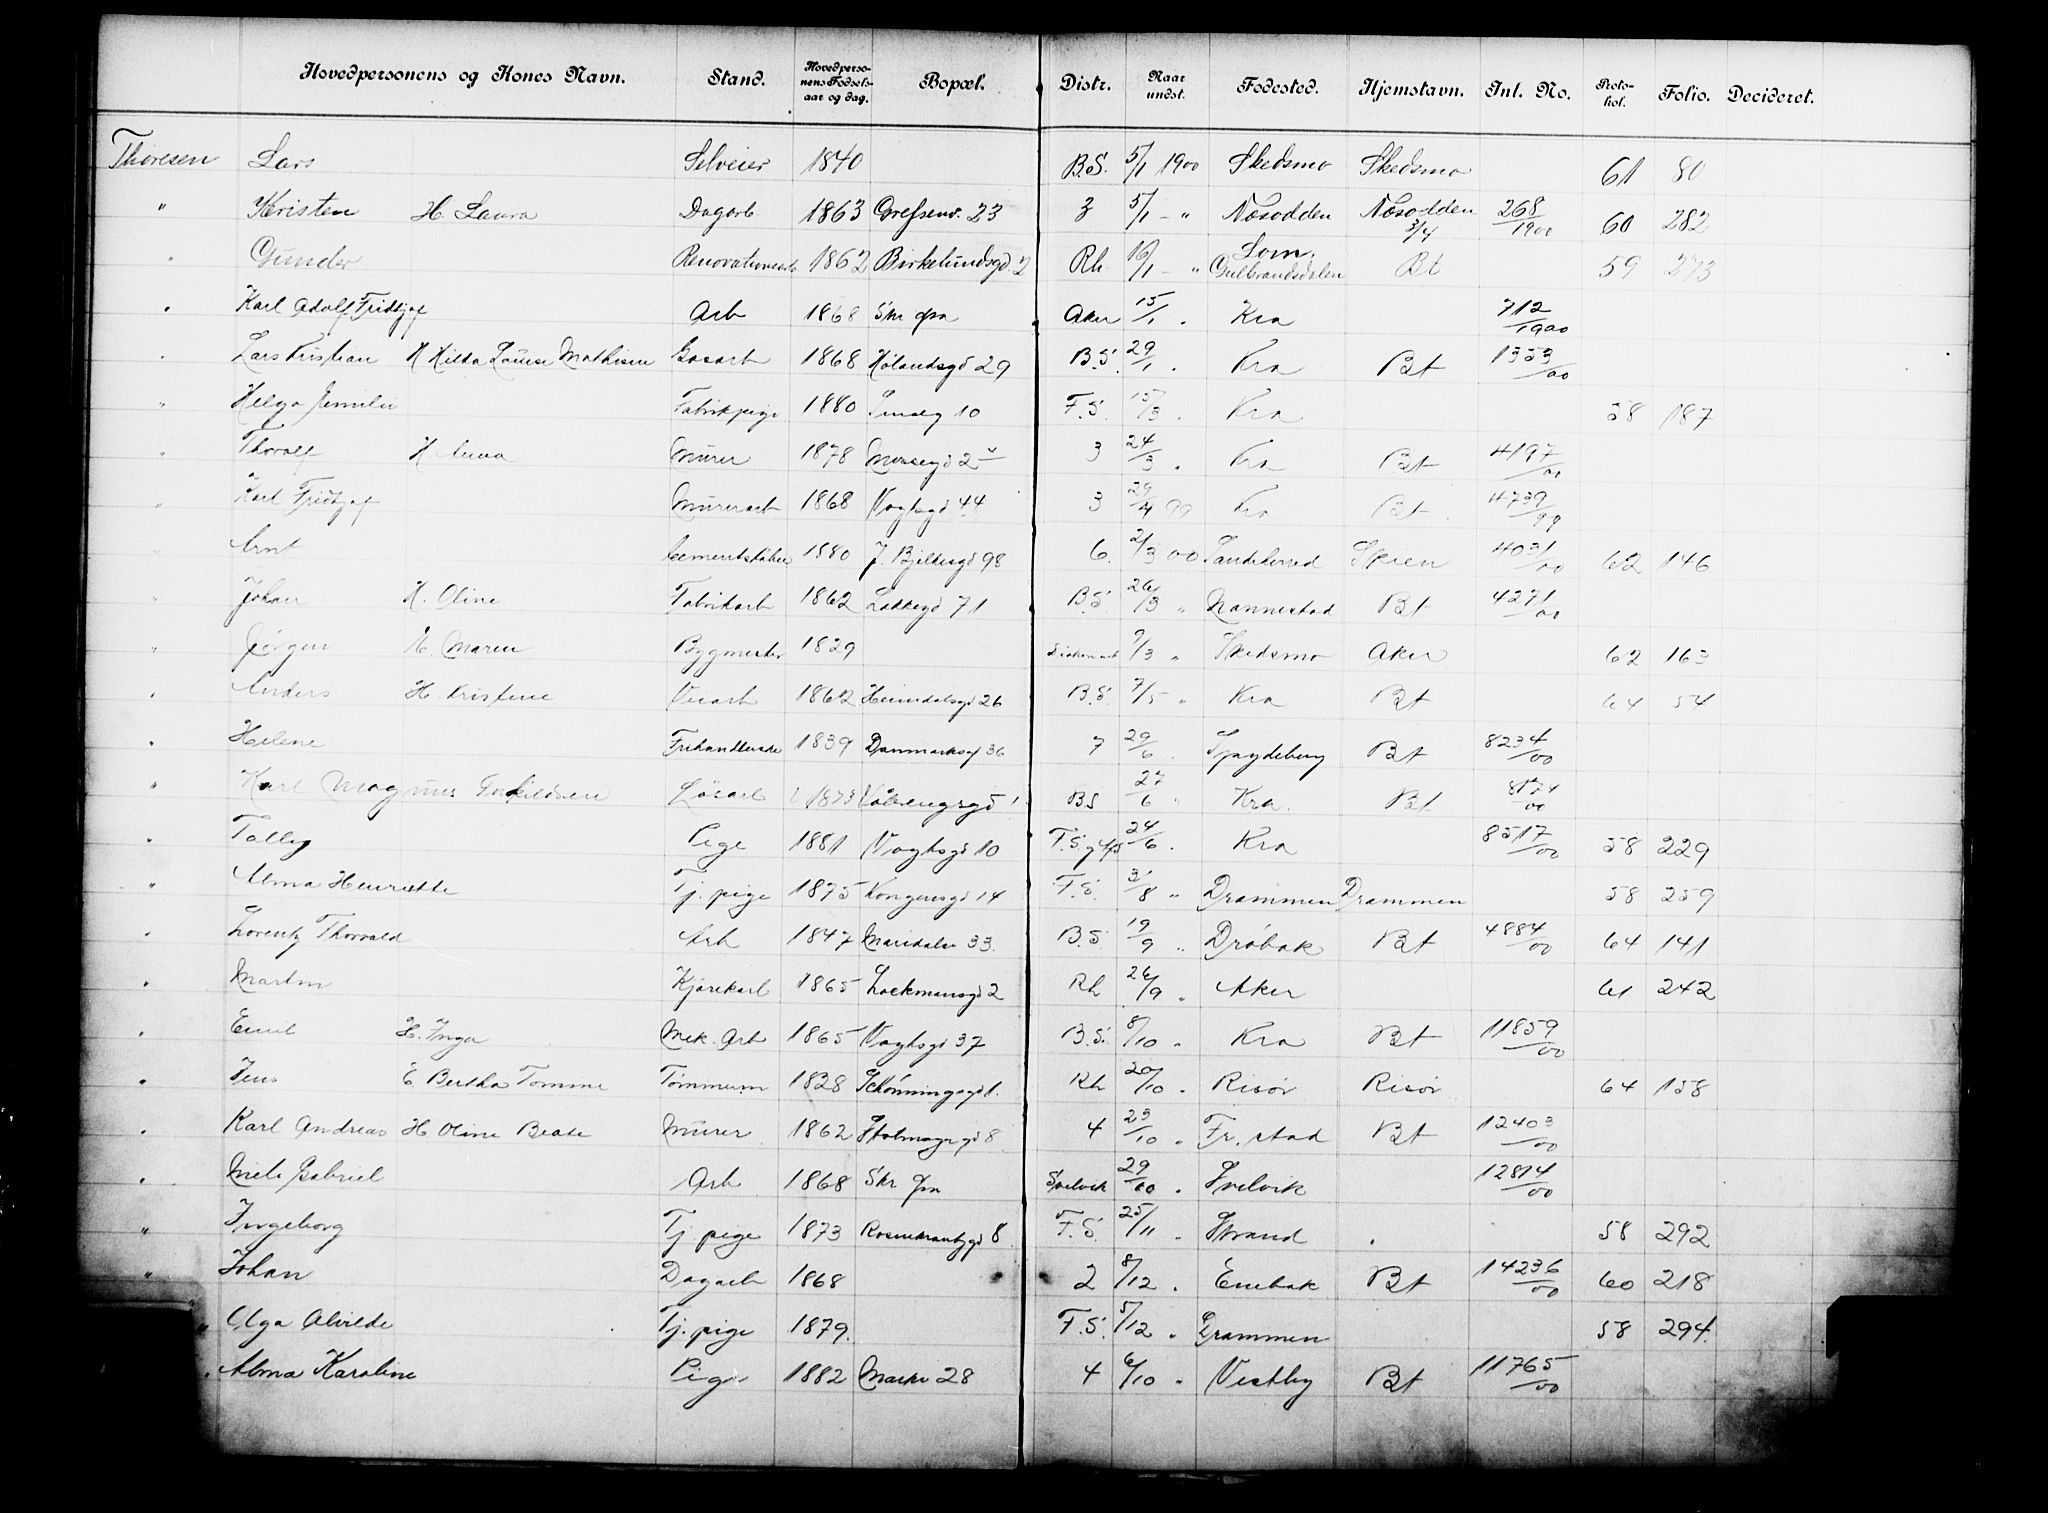 Hovedpersonens og Kones Navn. Stand. Hovedpersonens Fødselsaar og dag. Bopæl. Distr. Naar undst. Fødested. Hjemstavn. Inl. No. Protokol. Folio. Decideret.
Thoresen Lars Selveier 1840 B.S. 5/1 1900 Skedsmo Skedsmo 61 80
" Kristen H. Laura Dagarb 1863 Grefsenv. 23 3 5/1 - " Næsodden Næsodden 3/4 268/1900 60 282
" Gunder Renovationsarb 1862 Birkelundsgd 2 Rh. 16/1 - " Lom. Gulbrandsdalen Bt 59 273
" Karl Adolf Fridtjof Arb 1868 Aker 15/1 " Kra 712/1900
" Lars Kristian H Hilda Louise Mathisen Gasarb 1868 Hølandsgd 29 B.S. 29/1 " Kra Bt 1353/00
" Helga Emilie Fabrikpige 1880 10 F.S. 15/3 " Kra 58 187
" Thoralf H Anna Murer 1878 Mossegd 2 3 24/3 " Kra Bt 4197/00
" Karl Fridtjof Murerarb 1868 Vogtsgd 44 3 29/4 99 Kra Bt 4739/99
" Arnt Cementstøber 1880 J. Bjelkesgd 98 6. 2/3 00 Sandeherred Skien 4031/00 62 146
" Johan H. Oline Fabrikarb 1862 Lakkegd 71 B.S. 26/3 " Nannestad Bt 4271/00
" Jørgen E. Maren Bygmester 1829 9/3 " Skedsmo Aker 62 163
" Anders H. Kristine Veiarb 1862 Heimdalsgd 26 B.S. 7/5 " Kra Bt 64 54
" Helene Frihandlerske 1839 Danmarksgd 36 7 29/6 Spydeberg Bt 8234/00
" Karl Magnus Torkildsen Løsarb 1873 Vålerengsgd 1 BS 27/6 " Kra. Bt 8174/00
" Tolly Pige 1881 Vogtsgd 10 F.S. 24/6 " Kra 8517/00 58 229
" Alma Henriette Tj. pige 1875 Kongensgd 14 F.S. 3/8 " Drammen Drammen 58 259
" Lorentz Thorvald Arb 1847 Maridalsv 33. B.S. 19/9 " Drøbak Bt 4884/00 64 141
" Martin Kjørekarl 1865 Lockmansgd 2 Rh 26/9 " Aker 61 242
" Emil H. Inga Mek. Arb 1865 Vogtsgd 37 B.S. 8/10 " Kra Bt 11859/00
" Jens E Bertha Tomine Tømmerm 1828 Schønningsgd 1. Rh 20/10 " Risør Risør 64 158
" Karl Andreas H Oline Beate Murer 1862 8 4 23/10 " Fr. stad Bt 12403/00
" Niels Gabriel Arb 1868 Svelvik 29/10 " Svelvik 12814/00
" Ingeborg Tj pige 1873 Rosenkrantzgd 8 F.S. 25/11 " Strand " 58 292
" Johan Dagarb 1868 2 8/12 " Enebak Bt 14236/00 60 218
" Olga Alvilde Tj. pige 1879. F.S. 5/12 " Drammen 58 294.
" Alma Karoline Pige 1882 Markv 28 4 6/10 " Vestby Bt 11765/00